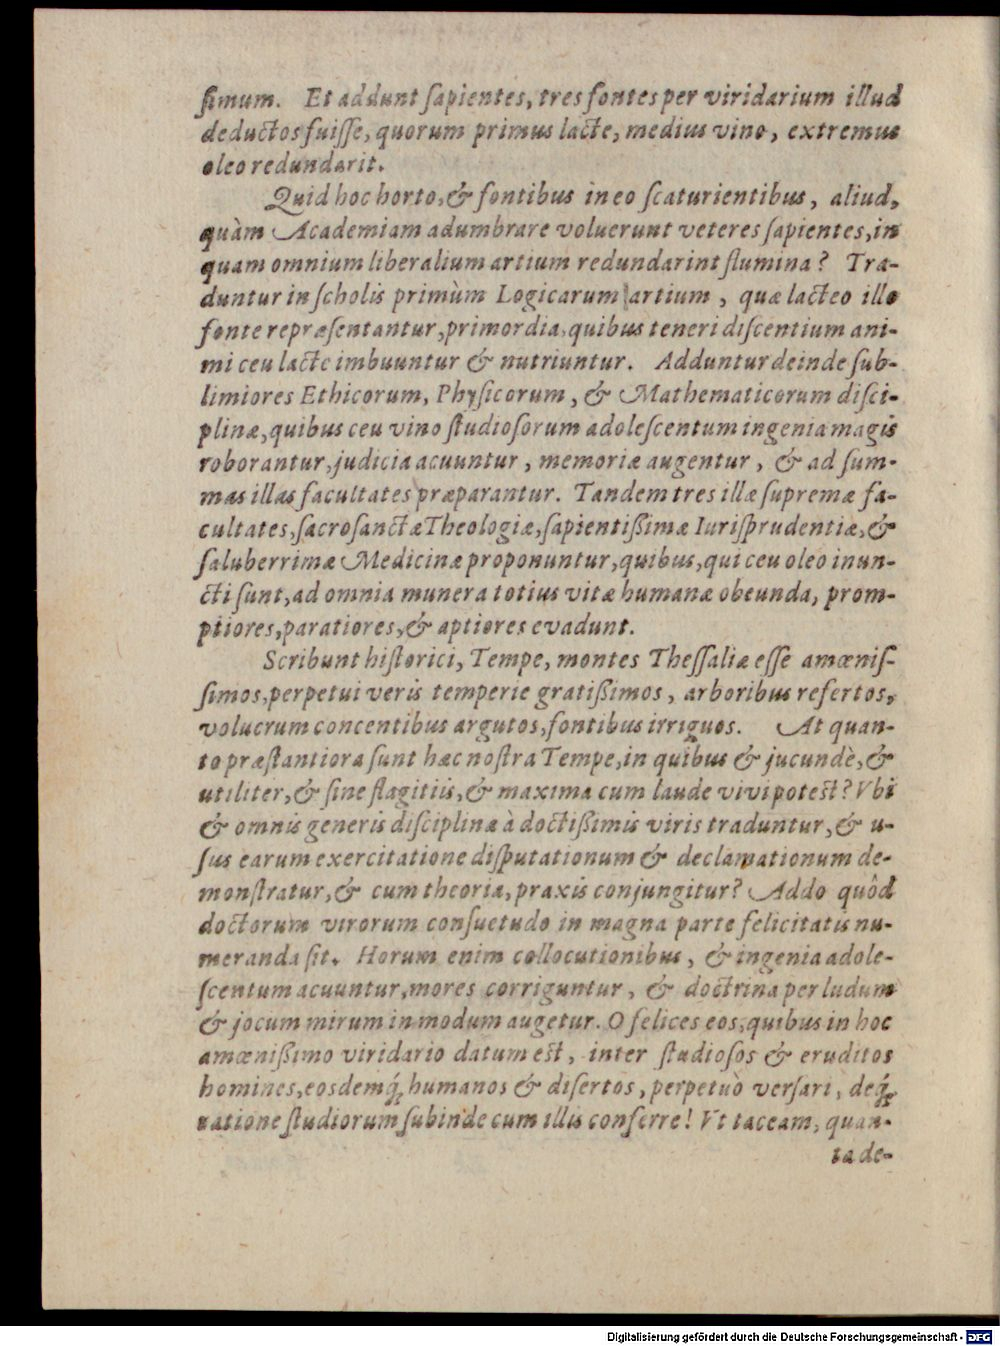 ſimum. Et addunt ſapientes, tres fontes per viridarium illud
deductos fuiſſe, quorum primus lacte, medius vino, extremus
oleo redundarit.
Quid hoc horto, & fontibus in eo ſcaturientibus, aliud,
quàm Academiam adumbrare voluerunt veteres ſapientes, in
quam omnium liberalium artium redundarint flumina? Tra-
duntur in ſcholis primùm Logicarum artium, quæ lacteo illo
fonte repræſentantur, primordia, quibus teneri diſcentium ani-
mi ceu lacte imbuuntur & nutriuntur. Adduntur deinde ſub-
limiores Ethicorum, Phyſicorum, & Mathematicorum diſci-
plinæ, quibus ceu vino ſtudioſorum adoleſcentum ingenia magis
roborantur, judicia acuuntur, memoriæ augentur, & ad ſum-
mas illas facultates præparantur. Tandem tres illæ ſupremæ fa-
cultates, ſacroſanctæ Theologiæ, ſapientißimæ Iuriſprudentiæ, &
ſaluberrimæ Medicinæ proponuntur, quibus, qui ceu oleo inun-
cti ſunt, ad omnia munera totius vitæ humanæ obeunda, prom-
ptiores, paratiores, & aptiores evadunt.
Scribunt hiſtorici, Tempe, montes Theſſaliæ eſſe amœniſ-
ſimos, perpetui veris temperie gratißimos, arboribus refertos,
volucrum concentibus argutos, fontibus irriguos. At quan-
to præſtantiora ſunt hæc noſtra Tempe, in quibus & jucundè, &
utiliter, & ſine flagitiis, & maxima cum laude vivi potest? Vbi
& omnis generis diſciplinæ à doctißimis viris traduntur, & u-
ſus earum exercitatione diſputationum & declamationum de-
monſtratur, & cum theoria, praxis conjungitur? Addo quòd
doctorum virorum conſuetudo in magna parte felicitatis nu-
meranda ſit. Horum enim collocutionibus, & ingenia adole-
ſcentum acuuntur, mores corriguntur, & doctrina per ludum
& jocum mirum in modum augetur. O felices eos, quibus in hoc
amœnißimo viridario datum est, inter ſtudioſos & eruditos
homines, eosdemq́; humanos & diſertos, perpetuò verſari, deq́;
ratione ſtudiorum ſubinde cum illis conferre! Vt taceam, quan-
ta de-
Digitalisierung gefördert durch die Deutsche Forschungsgemeinschaft - DFG